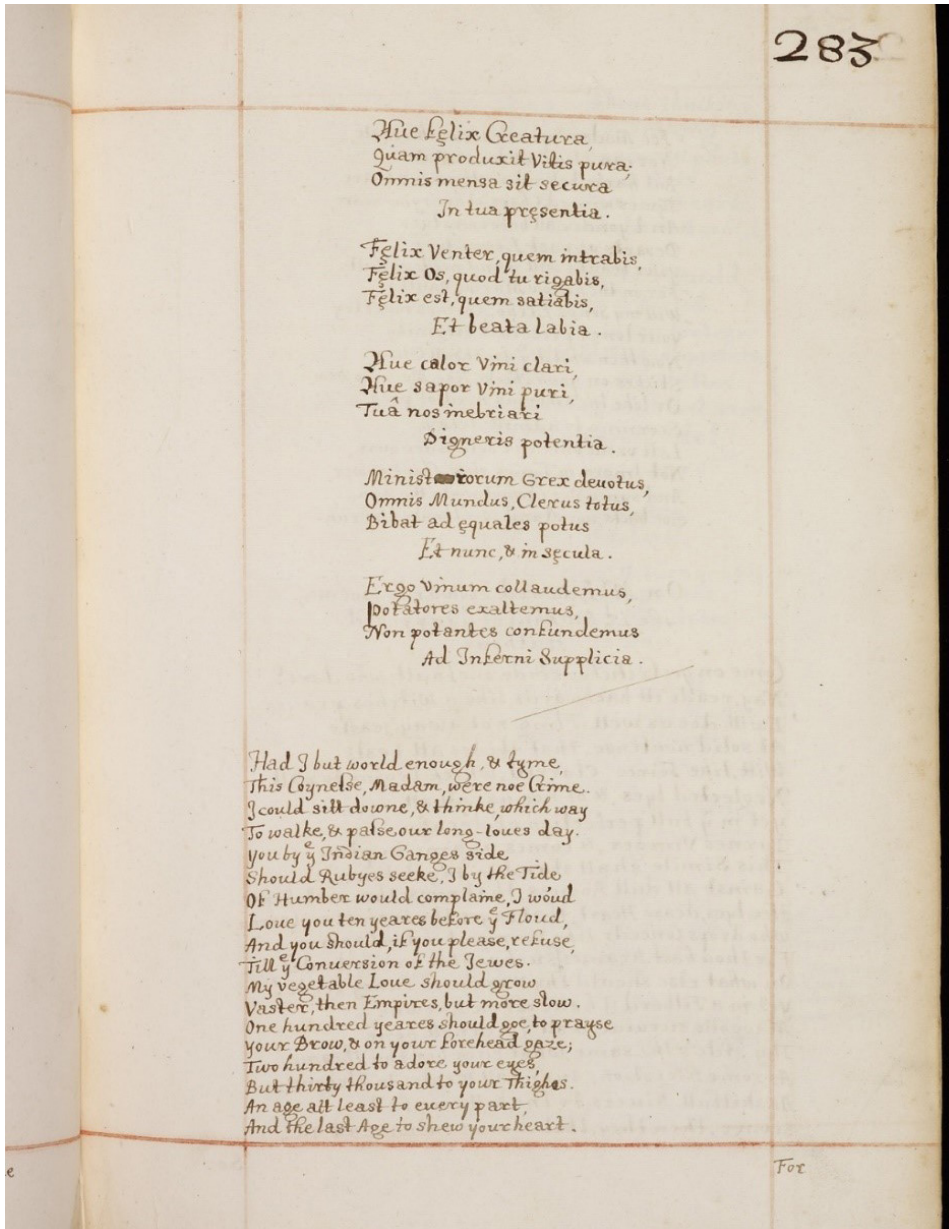 283
Aue fęlix Creatura,
Quam produxit Vitis pura;
Omnis mensa sit secura
In tua pręsentia.
Fęlix Venter, quem intrabis,
Fęlix Os, quod tu rigabis,
Fęlix est, quem satiabis,
Et beata labia.
Aue calor Vini clari,
Aue sapor Vini puri,
Tuâ nos inebriari
Digneris potentia.
Ministrorum Grex deuotus,
Omnis Mundus, Clerus totus,
Bibat ad ęquales potus
Et nunc, & in sęcula.
Ergo Vinum collaudemus,
Potatores exaltemus,
Non potantes confundemus
Ad Inferni Supplicia.
Had I but world enough, & tyme,
This Coynesse, Madam, were noe Crime.
I could sitt downe, & thinke, which way
To walke, & passe our long-loues day.
You by yᵉ Indian Ganges side
Should Rubyes seeke, I by the Tide
Of Humber would complaine, I woud
Loue you ten yeares before yᵉ Floud,
And you should, if you please, refuse,
Till yᵉ Conuersion of the Jewes.
My vegetable Loue should grow
Vaster, then Empires, but more slow.
One hundred yeares should goe, to prayse
your Brow, & on your forehead gaze;
Two hundred to adore your eyes,
But thirty thousand to your Thighes.
An age att least to euery part,
And the last Age to shew your heart.
For